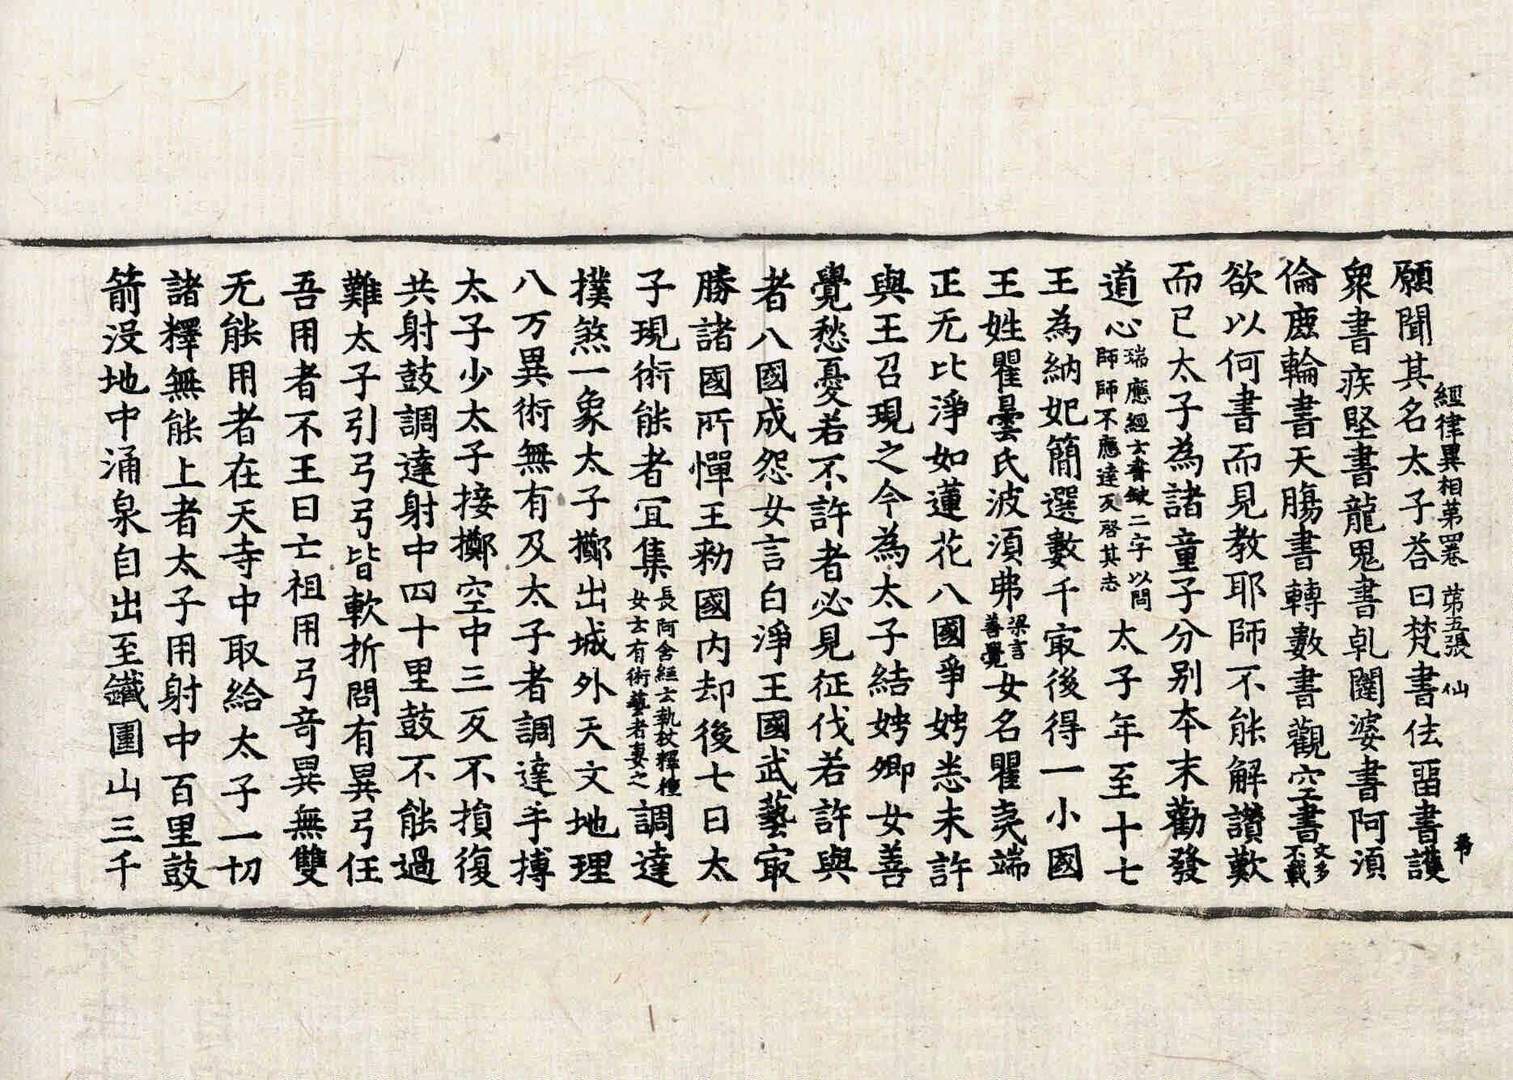 經律異相第四卷 第五張 仙
願聞其名太子荅曰梵書佉留書護
衆書疾堅書龍鬼書乹闥婆書阿湏
倫鹿輪書天腸書轉數書觀空書文多不載
欲以何書而見教耶師不能解讃歎
而已太子為諸童子分別本末勸發
道心瑞應經云書缺二字以問師師不應達反啓其志太子年至十七
王為納妃簡選數千㝡後得一小國
王姓瞿曇氏波湏弗梁言善覺女名瞿夷端
正无比淨如蓮花八國爭娉悉未許
與王召現之今為太子結娉卿女善
覺愁憂若不許者必見征伐若許與
者八國成怨女言白淨王國武藝㝡
勝諸國所憚王勑國内却後七日太
子現術能者冝集長阿含經云執杖釋種女云有術藝者妻之調達
撲煞一象太子擲出城外天文地理
八万異術無有及太子者調達手搏
太子少太子接擲空中三反不損復
共射鼓調達射中四十里鼓不能過
難太子引弓弓皆軟折問有異弓任
吾用者不王曰亡祖用弓奇異無雙
无能用者在天寺中取給太子一切
諸釋無能上者太子用射中百里鼓
箭没地中涌泉自出至鐵圍山三千